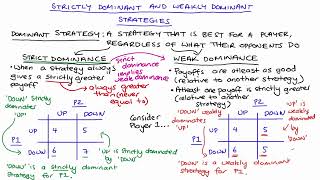 STRICTLY DOMINANT AND WEAKLY DOMINANT
STRATEGIES
DOMINANT STRATEGY: A STRATEGY THAT IS BEST FOR A PLAYER,
REGARDLESS OF WHAT THEIR OPPONENTS DO
STRICT DOMINANCE
• When a strategy always
gives a strictly greater
payoff
→ always greater than
(never equal to)
Strict dominance implies weak dominance
WEAK DOMINANCE
• Payoffs are at least as good
(relative to another strategy)
• At least one payoff is strictly
greater (relative to another
strategy)
'DOWN' strictly
dominates
'UP'
P2
UP DOWN
P1
UP 4 5
DOWN 6 7
'UP' is strictly dominated
by 'DOWN'
'DOWN' is a strictly dominant
strategy for P1.
Consider
Player 1...
'DOWN' weakly
dominates
'UP'
P2
UP DOWN
P1
UP 4 5
DOWN 6 5
'UP' is
weakly
dominated
by
'DOWN'
'DOWN' is a weakly dominant
strategy for P1.